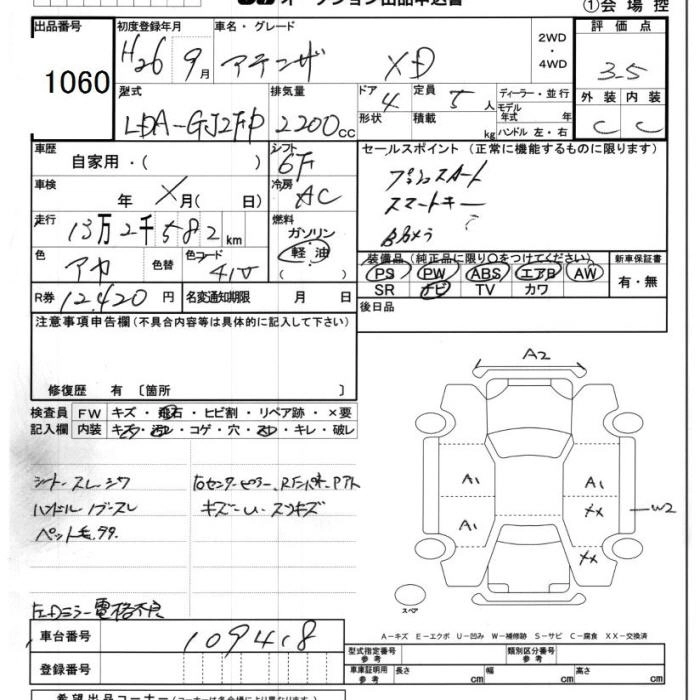 オークション出品申込書
①会場控
出品番号
1060
初度登録年月
H26 9月
車名・グレード
アテンザ XD
2WD
・
4WD
評価点
3.5
型式
LDA-GJ2FP
排気量
2200cc
ドア
4
形状
定員
5人
積載
kg
ディーラー・並行
モデル
年式 年
ハンドル 左・右
外装 内装
C C
車歴
自家用・( )
シフト
6F
車検
年 X月( 日)
冷房
AC
走行
13万2千582km
燃料
ガソリン
軽油
( )
色
アカ
色替
色コード
41V
R券 12,420円
名変通知期限 月 日
セールスポイント (正常に機能するものに限ります)
プッシュスタート
スマートキー
Bカメラ
装備品(純正品に限り○をつけてください)
PS PW ABS エアB AW
SR ナビ TV カワ
新車保証書
有・無
後日品
注意事項申告欄(不具合内容等は具体的に記入して下さい)
修復歴 有 〔箇所 〕
検査員 FW キズ・飛石・ヒビ割・リペア跡・×要
記入欄 内装 キズ・汚レ・コゲ・穴・スレ・キレ・破レ
シートスレ・シワ
ハンドルノブスレ
ペット毛
キズ
電格不良
A2
A1
A1
A1
XX
XX
W2
スペア
A-キズ E-エクボ U-凹み W-補修跡 S-サビ C-腐食 XX-交換済
車台番号
109418
登録番号
型式指定番号
参考
類別区分番号
参考
車庫証明用
参考
長さ cm
幅 cm
高さ cm
希望出品コーナー